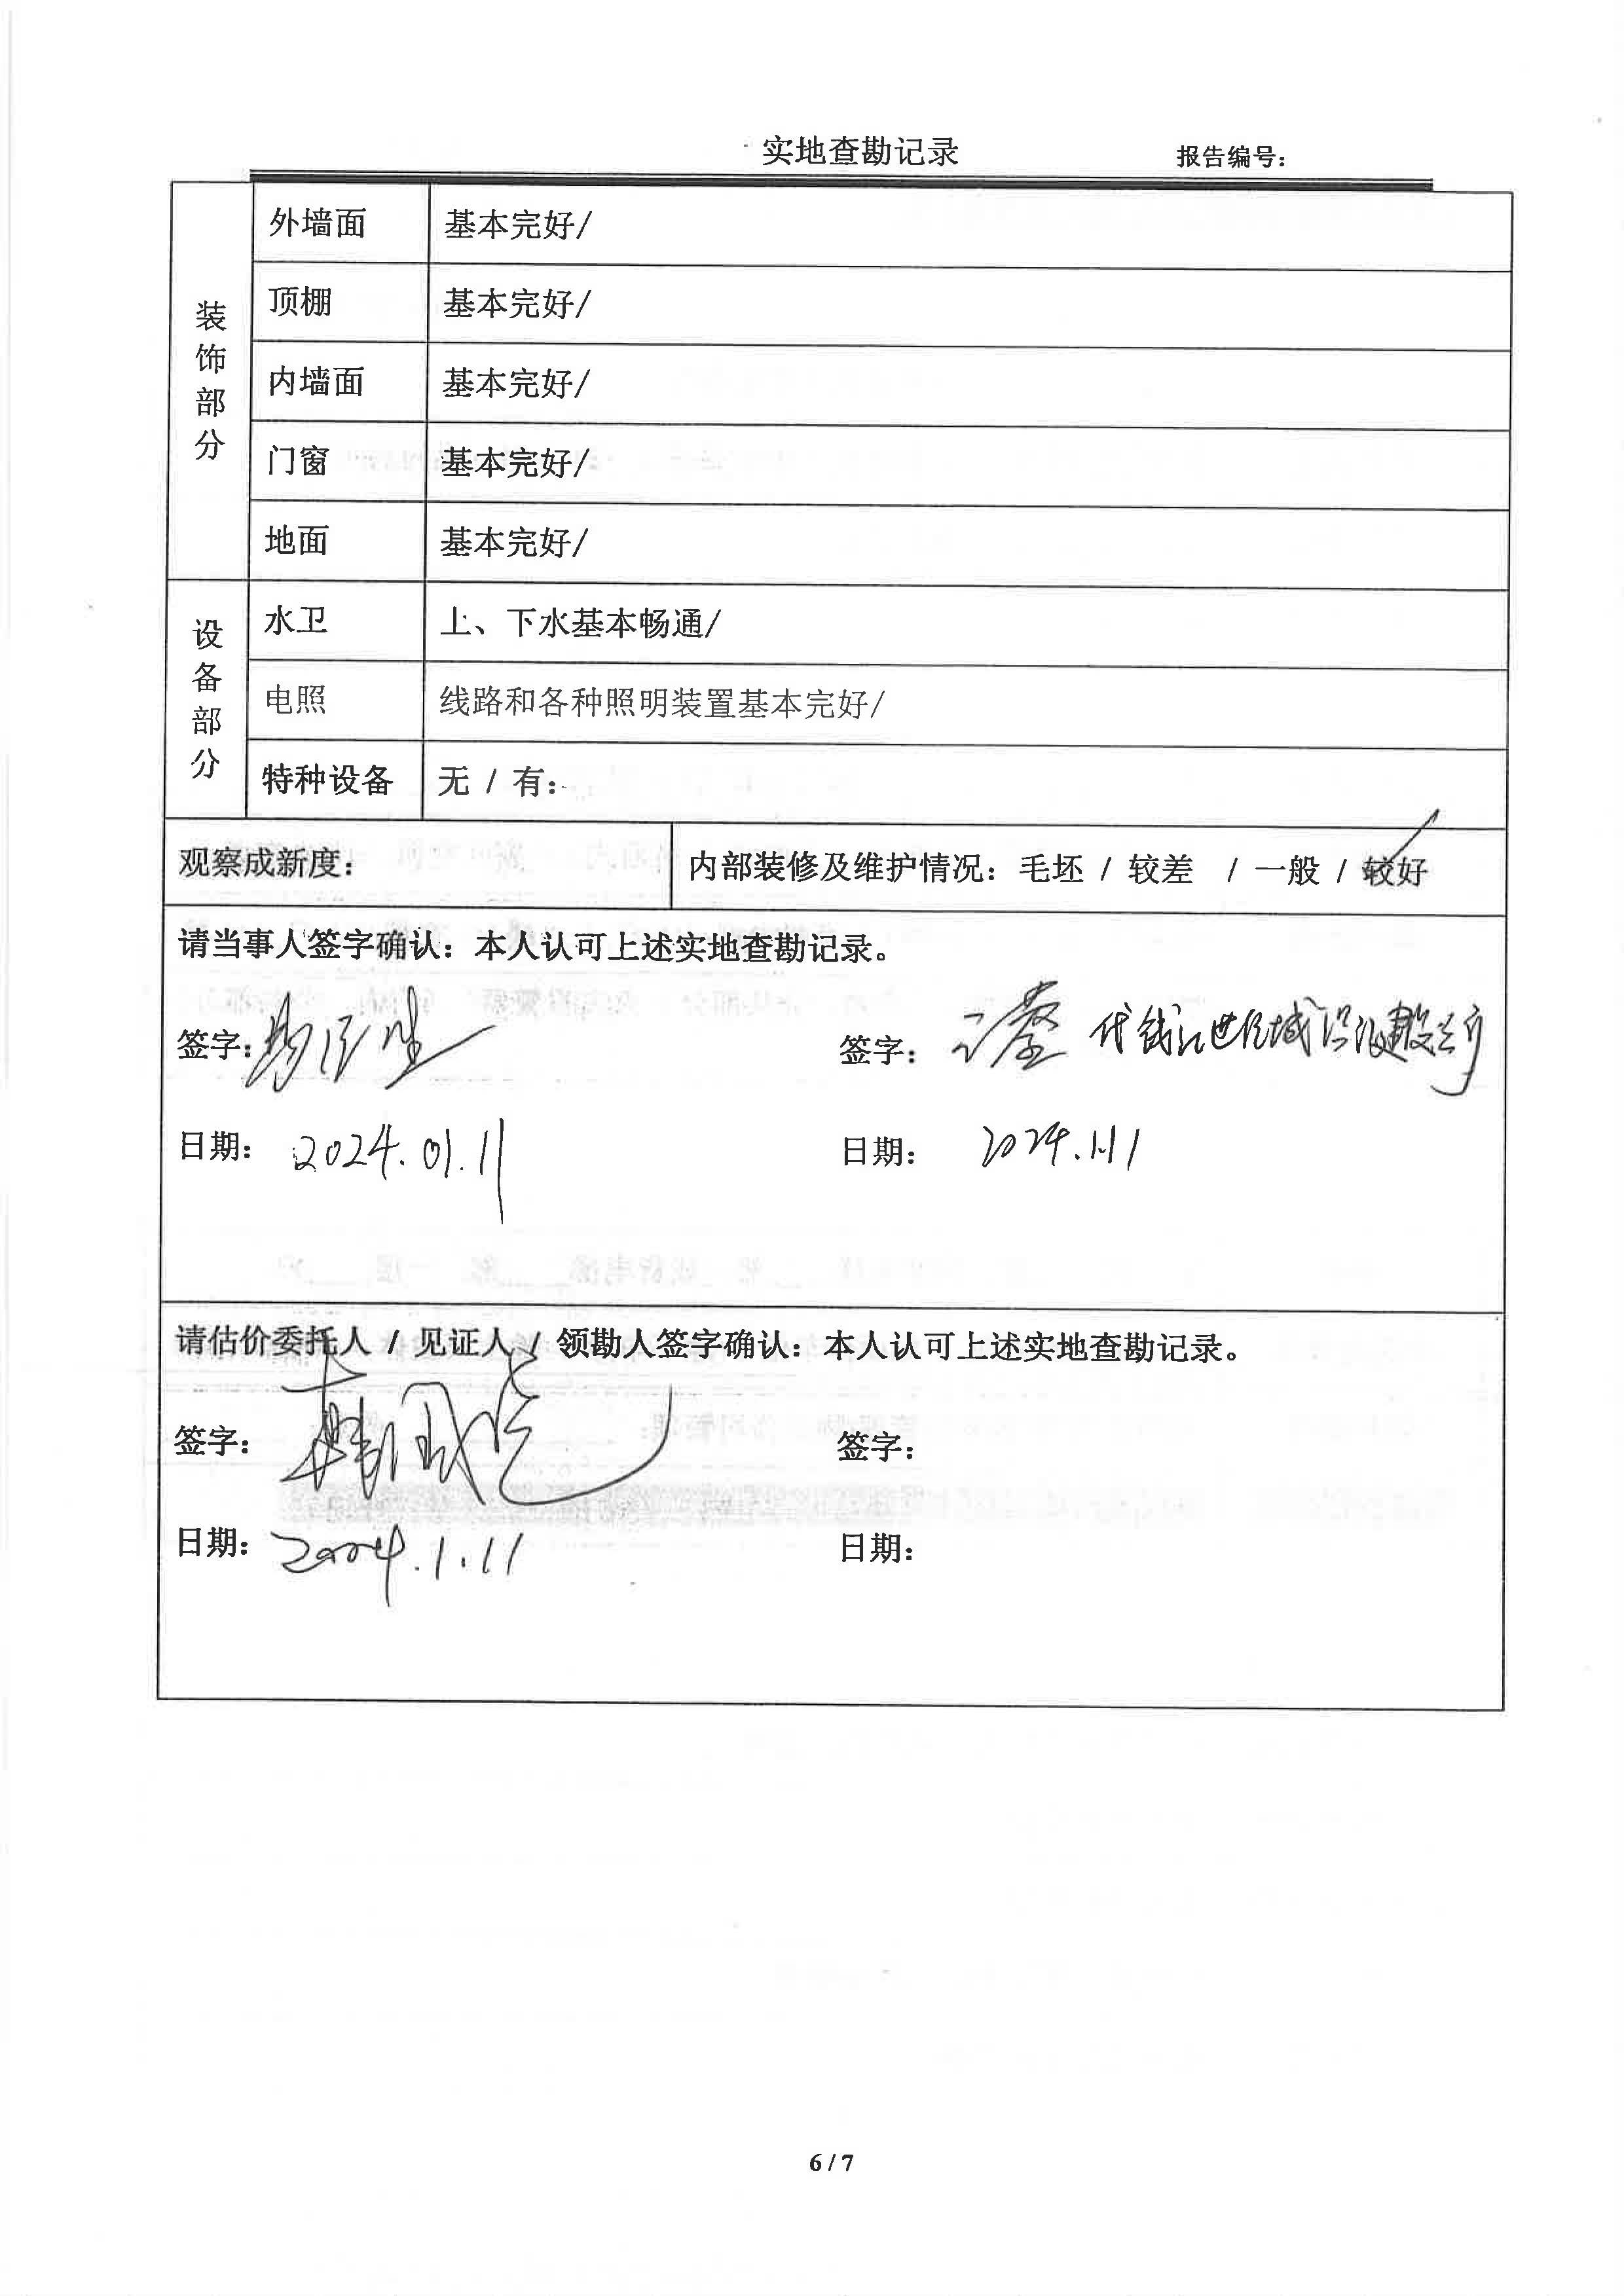 实地查勘记录 报告编号：
装饰部分
外墙面 基本完好/
顶棚 基本完好/
内墙面 基本完好/
门窗 基本完好/
地面 基本完好/
设备部分
水卫 上、下水基本畅通/
电照 线路和各种照明装置基本完好/
特种设备 无 / 有：
观察成新度： 内部装修及维护情况：毛坯 / 较差 / 一般 / 较好
请当事人签字确认：本人认可上述实地查勘记录。
签字： 签字： 代钱江世纪城
日期： 2024.01.11 日期： 2024.1.11
请估价委托人 / 见证人 / 领勘人签字确认：本人认可上述实地查勘记录。
签字： 签字：
日期： 2024.1.11 日期：
6 / 7